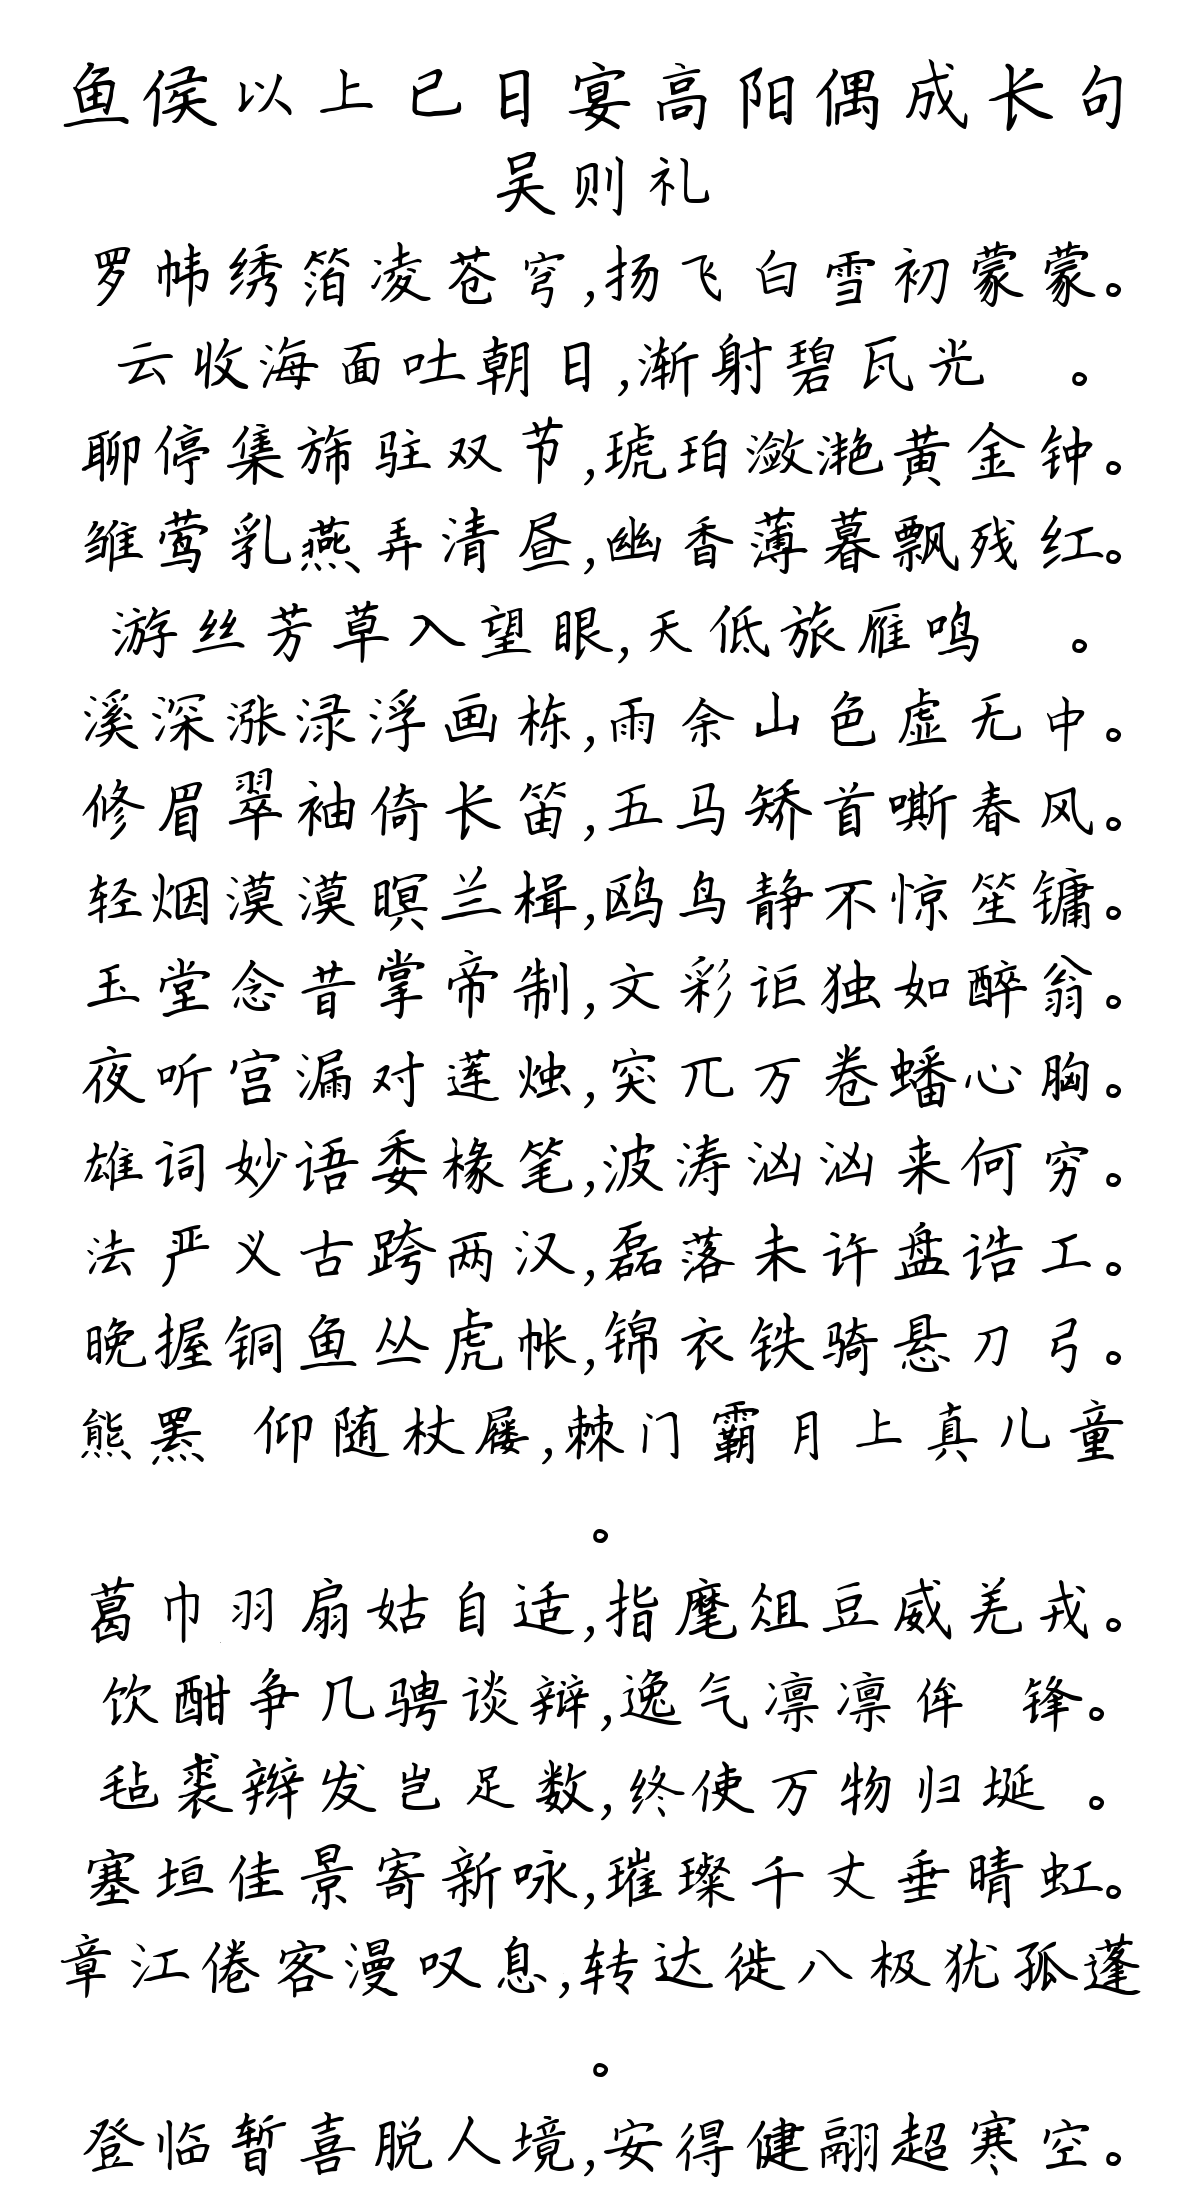 鱼侯以上已日宴高阳偶成长句
吴则礼
罗帏绣箔凌苍穹,扬飞白雪初蒙蒙。
云收海面吐朝日,渐射碧瓦光 。
聊停集旆驻双节,琥珀潋滟黄金钟。
雏莺乳燕弄清昼,幽香薄暮飘残红。
游丝芳草入望眼,天低旅雁鸣 。
溪深涨渌浮画栋,雨余山色虚无中。
修眉翠袖倚长笛,五马矫首嘶春风。
轻烟漠漠暝兰楫,鸥鸟静不惊笙镛。
玉堂念昔掌帝制,文彩讵独如醉翁。
夜听宫漏对莲烛,突兀万卷蟠心胸。
雄词妙语委椽笔,波涛汹汹来何穷。
法严义古跨两汉,磊落未许盘诰工。
晚握铜鱼丛虎帐,锦衣铁骑悬刀弓。
熊罴 仰随杖屦,棘门霸月上真儿童
。
葛巾羽扇姑自适,指麾俎豆威羌戎。
饮酣争几骋谈辩,逸气凛凛侔 锋。
毡裘辫发岂足数,终使万物归埏 。
塞垣佳景寄新咏,璀璨千丈垂晴虹。
章江倦客漫叹息,转达徙八极犹孤蓬
。
登临暂喜脱人境,安得健翮超寒空。